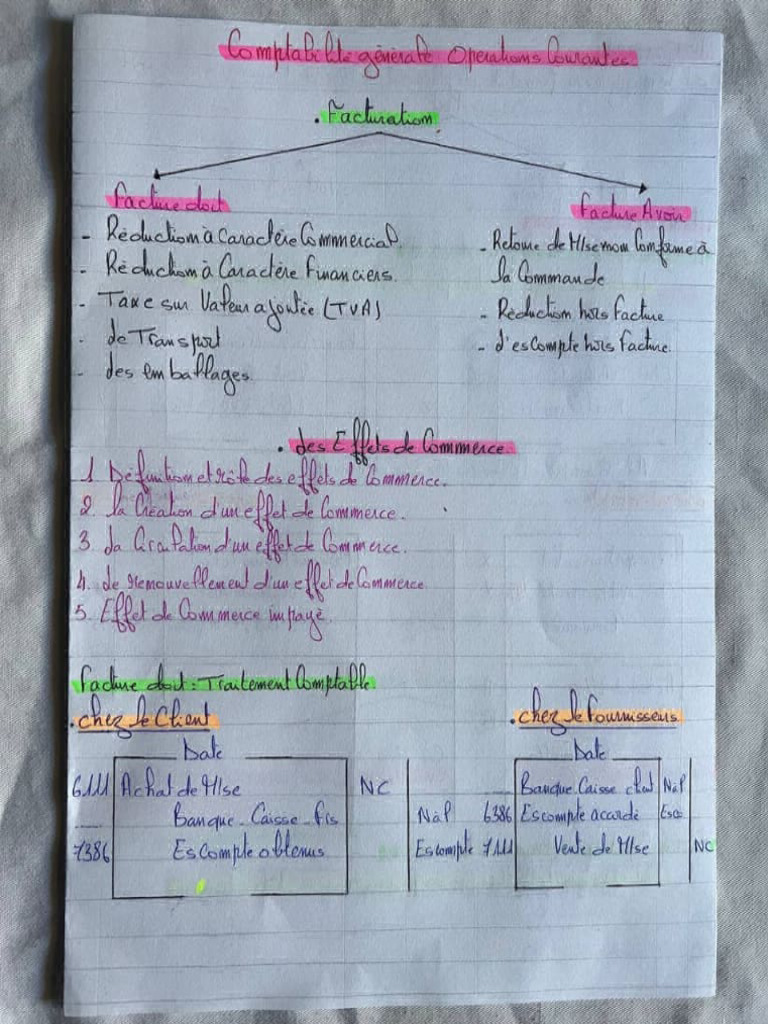 Comptabilité générale Opérations Courantes.
. Facturation
Facture doit
- Réduction à Caractère Commercial.
- Réduction à Caractère Financiers.
- Taxe sur Valeur ajoutée (TVA)
- de Transport
- des emballages.
Facture Avoir
- Retour de Mse non Conforme à
la Commande
- Réduction hors facture
- d'escompte hors facture.
. des Effets de Commerce.
1. Définition et rôle des effets de Commerce.
2. la Création d'un effet de Commerce.
3. la Circulation d'un effet de Commerce.
4. de renouvellement d'un effet de Commerce
5. Effet de Commerce impayé.
Facture doit : Traitement Comptable
. chez le Client
Date
6111 Achat de Mse NC
Banque - Caisse - frs NàP
7386 Escompte obtenus Escompte
. chez le Fournisseurs
Date
Banque Caisse clnt NàP
6386 Escompte accordé Esco
7111 Vente de Mse NC